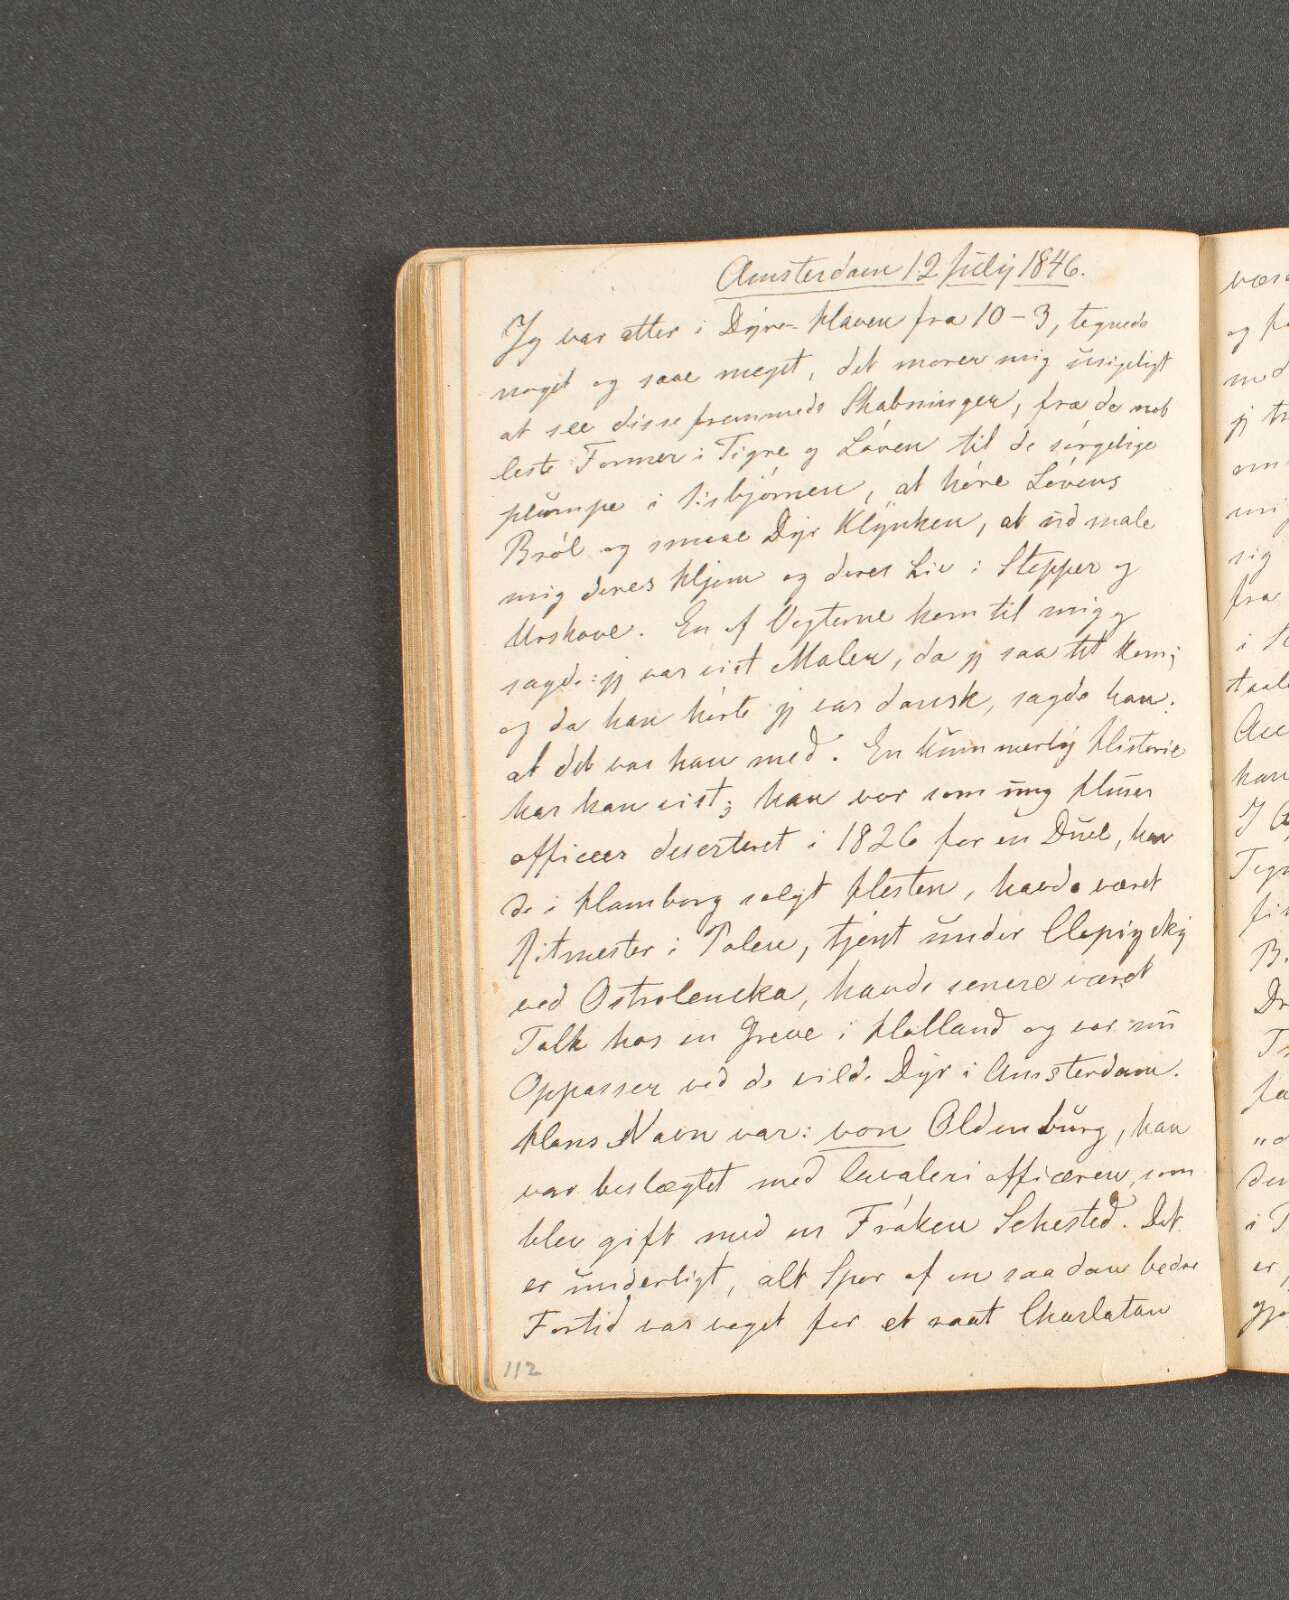 Amsterdam 12 July 1846.
Jeg var atter i Dyre-Haven fra 10-3, tegnede
noget og saae meget, det morer mig usigeligt
at see disse fremmede Skabninger, fra de nob
leste Former i Tigre og Löven til de sörgelige
plumpe i Isbjörnen, at höre Lövens
Bröl og smaae Dyr Klynken, at udmale
mig deres Hjem og deres Liv i Stepper og
Urskove. En af Vogterne kom til mig og
sagde: jeg var vist Maler, da jeg saa tit kom;
og da han hörte jeg var dansk, sagde han:
at det var han med. En kummerlig Historie
har han vist; han var som ung Husar
officeer deserteret i 1826 for en Duel, hav
de i Hamborg solgt Hesten, havde været
Ritmester i Polen, tjent under
ved Ostrolencka, havde senere været
Tolk hos en Greve i Holland og var nu
Oppasser ved de vilde Dyr i Amsterdam.
Hans Navn var: von Oldenburg, han
var beslægtet med Cavaleriofficæren, som
blev gift med en Fröken Sehested. Det
er underligt, alt Spor af en saadan bedre
Fortid var veget for et raat Charlatan
112
væs
og
med
jeg
om
mig
sig
fra
i
taal
han
Dr
i
er,